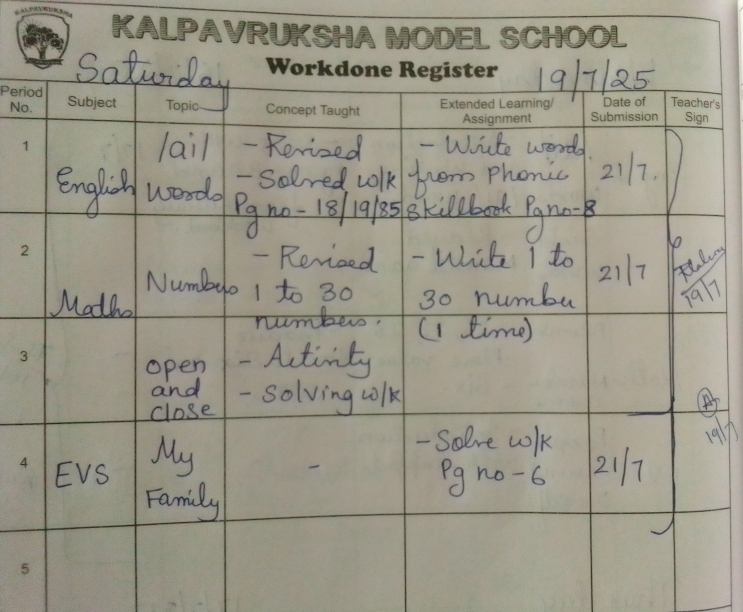 KALPAVRUKSHA
KALPAVRUKSHA MODEL SCHOOL
Workdone Register
Saturday 19/7/25
Period No. Subject Topic Concept Taught Extended Learning/ Assignment Date of Submission Teacher's Sign
1 English /ail/ words - Revised - Solved w/k Pg no - 18/19/85 - Write words from Phonic Skillbook Pg no-8 21/7.
2 Maths Numbers - Revised 1 to 30 numbers. - Write 1 to 30 number (1 time) 21/7 19/7
3 open and close - Activity - Solving w/k
4 EVS My Family - - Solve w/k Pg no - 6 21/7 19/7
5